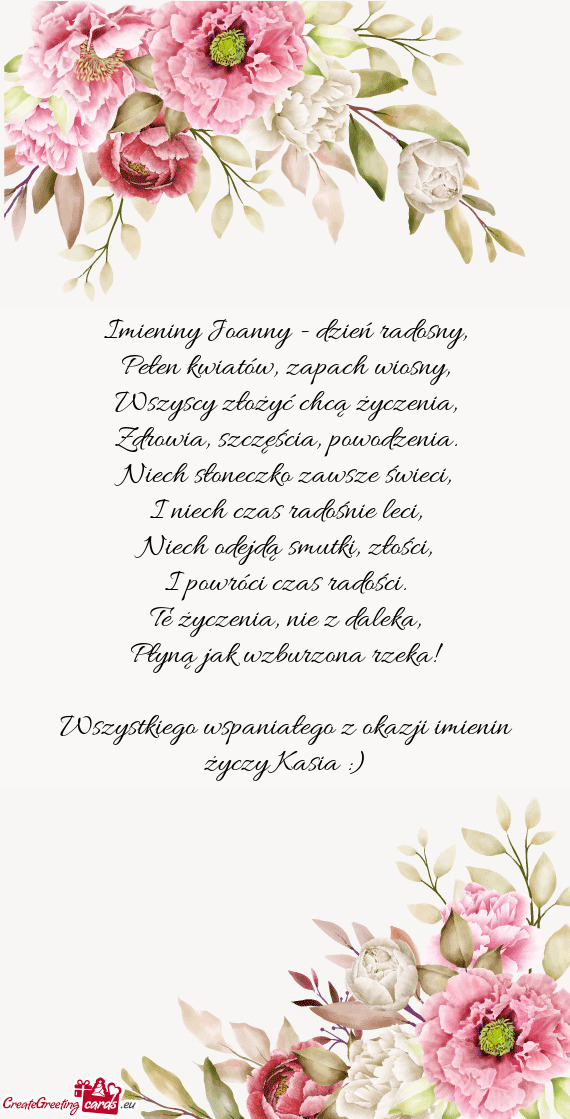 Imieniny Joanny - dzień radosny,
Pełen kwiatów, zapach wiosny,
Wszyscy złożyć chcą życzenia,
Zdrowia, szczęścia, powodzenia.
Niech słoneczko zawsze świeci,
I niech czas radośnie leci,
Niech odejdą smutki, złości,
I powróci czas radości.
Te życzenia, nie z daleka,
Płyną jak wzburzona rzeka!
Wszystkiego wspaniałego z okazji imienin
życzy Kasia :)
CreateGreeting cards .eu